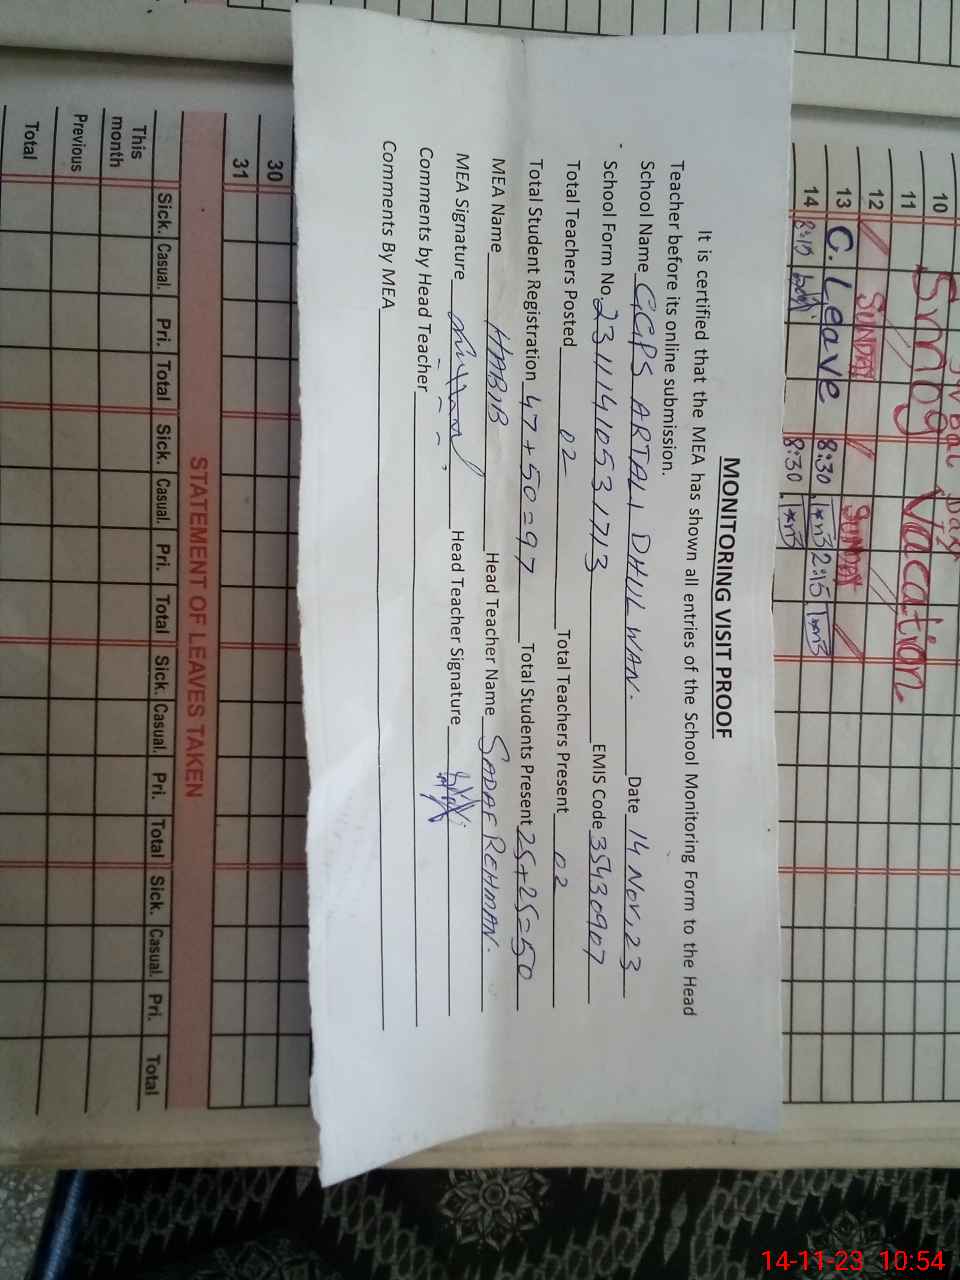 10
11
12
13
14
Smog Vacation
SUNDAY SUNDAY
C. Leave 8:30 2:15
8:15 8:30
MONITORING VISIT PROOF
It is certified that the MEA has shown all entries of the School Monitoring Form to the Head
Teacher before its online submission.
School Name GGPS ARTALI DHUL WAN. Date 14 Nov, 23
School Form No. 23111410531713 EMIS Code 35430907
Total Teachers Posted 02 Total Teachers Present 02
Total Student Registration 47+50=97 Total Students Present 25+25=50
MEA Name HABIB Head Teacher Name SADAF REHMAN.
MEA Signature Head Teacher Signature
Comments by Head Teacher
Comments By MEA
30
31
STATEMENT OF LEAVES TAKEN
Sick. Casual. Pri. Total Sick. Casual. Pri. Total Sick. Casual. Pri. Total Sick. Casual. Pri. Total
This month
Previous
Total
14-11-23 10:54